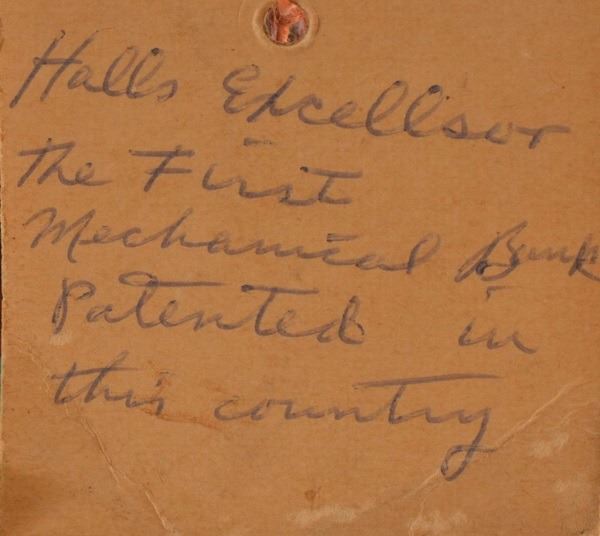 Halls Excellsor
the First
Mechanical Bank
Patented in
this country